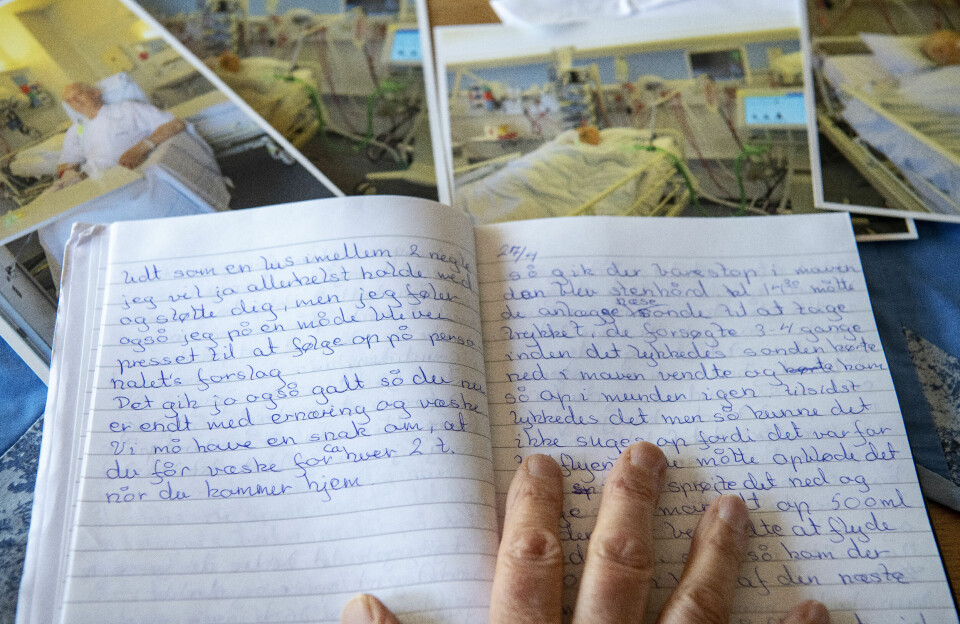 ludt som en lus imellem 2 negle
jeg vil ja allerhelst holde med
og støtte dig, men jeg føler
også jeg på en måde bliver
presset til at følge op på perso
nalet's forslag
Det gik ja også galt så du nu
er endt med ernæring og væske
Vi må have en snak om, at
du får væske for ca hver 2 t.
når du kommer hjem
så gik der bare stop i maven
den blev stenhård kl 17³⁰ måtte
de anlægge næse sonde til at tage
trykket. de forsøgte 3-4 gange
inden det lykkedes sonden kørte
ned i maven vendte og kom
så op i munden igen. tilsidst
lykkedes det men så kunne det
ikke suges op fordi det var for
måtte opbløde det
sprøite det ned og
op 500ml
at flyde
så kom der
af den næste